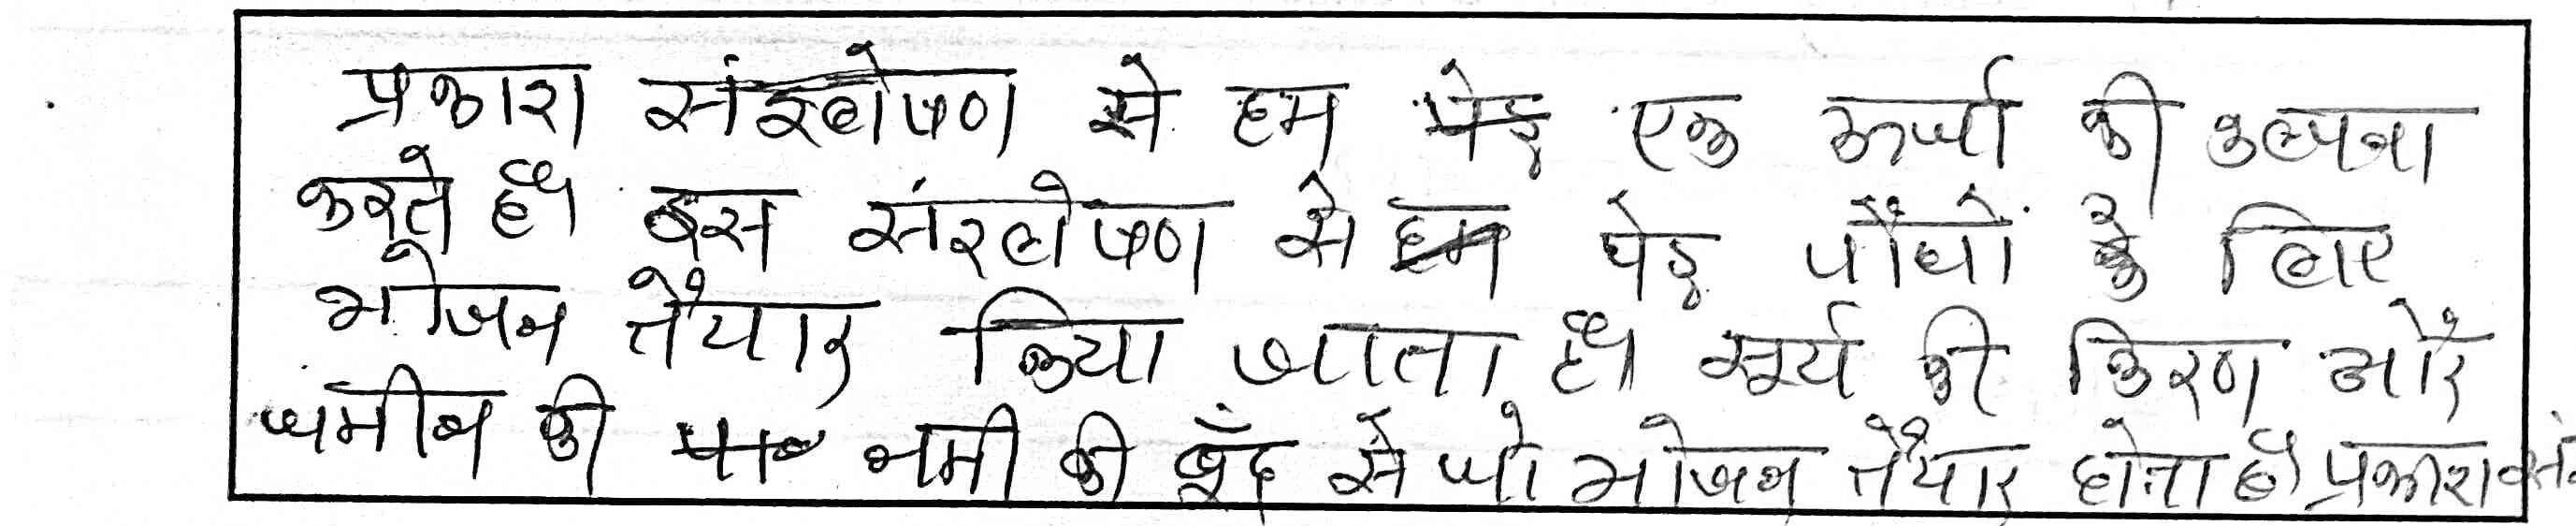 प्रकाश संश्लेषण से हम पेड़ एक ऊर्जा की कल्पना
करते है। इस संश्लेषण से हम पेड़ पौधों के लिए
भोजन तैयार किया जाता है। सूर्य की किरण और
जमीन की नमी की बूँद से जो भोजन तैयार होता है प्रकाश